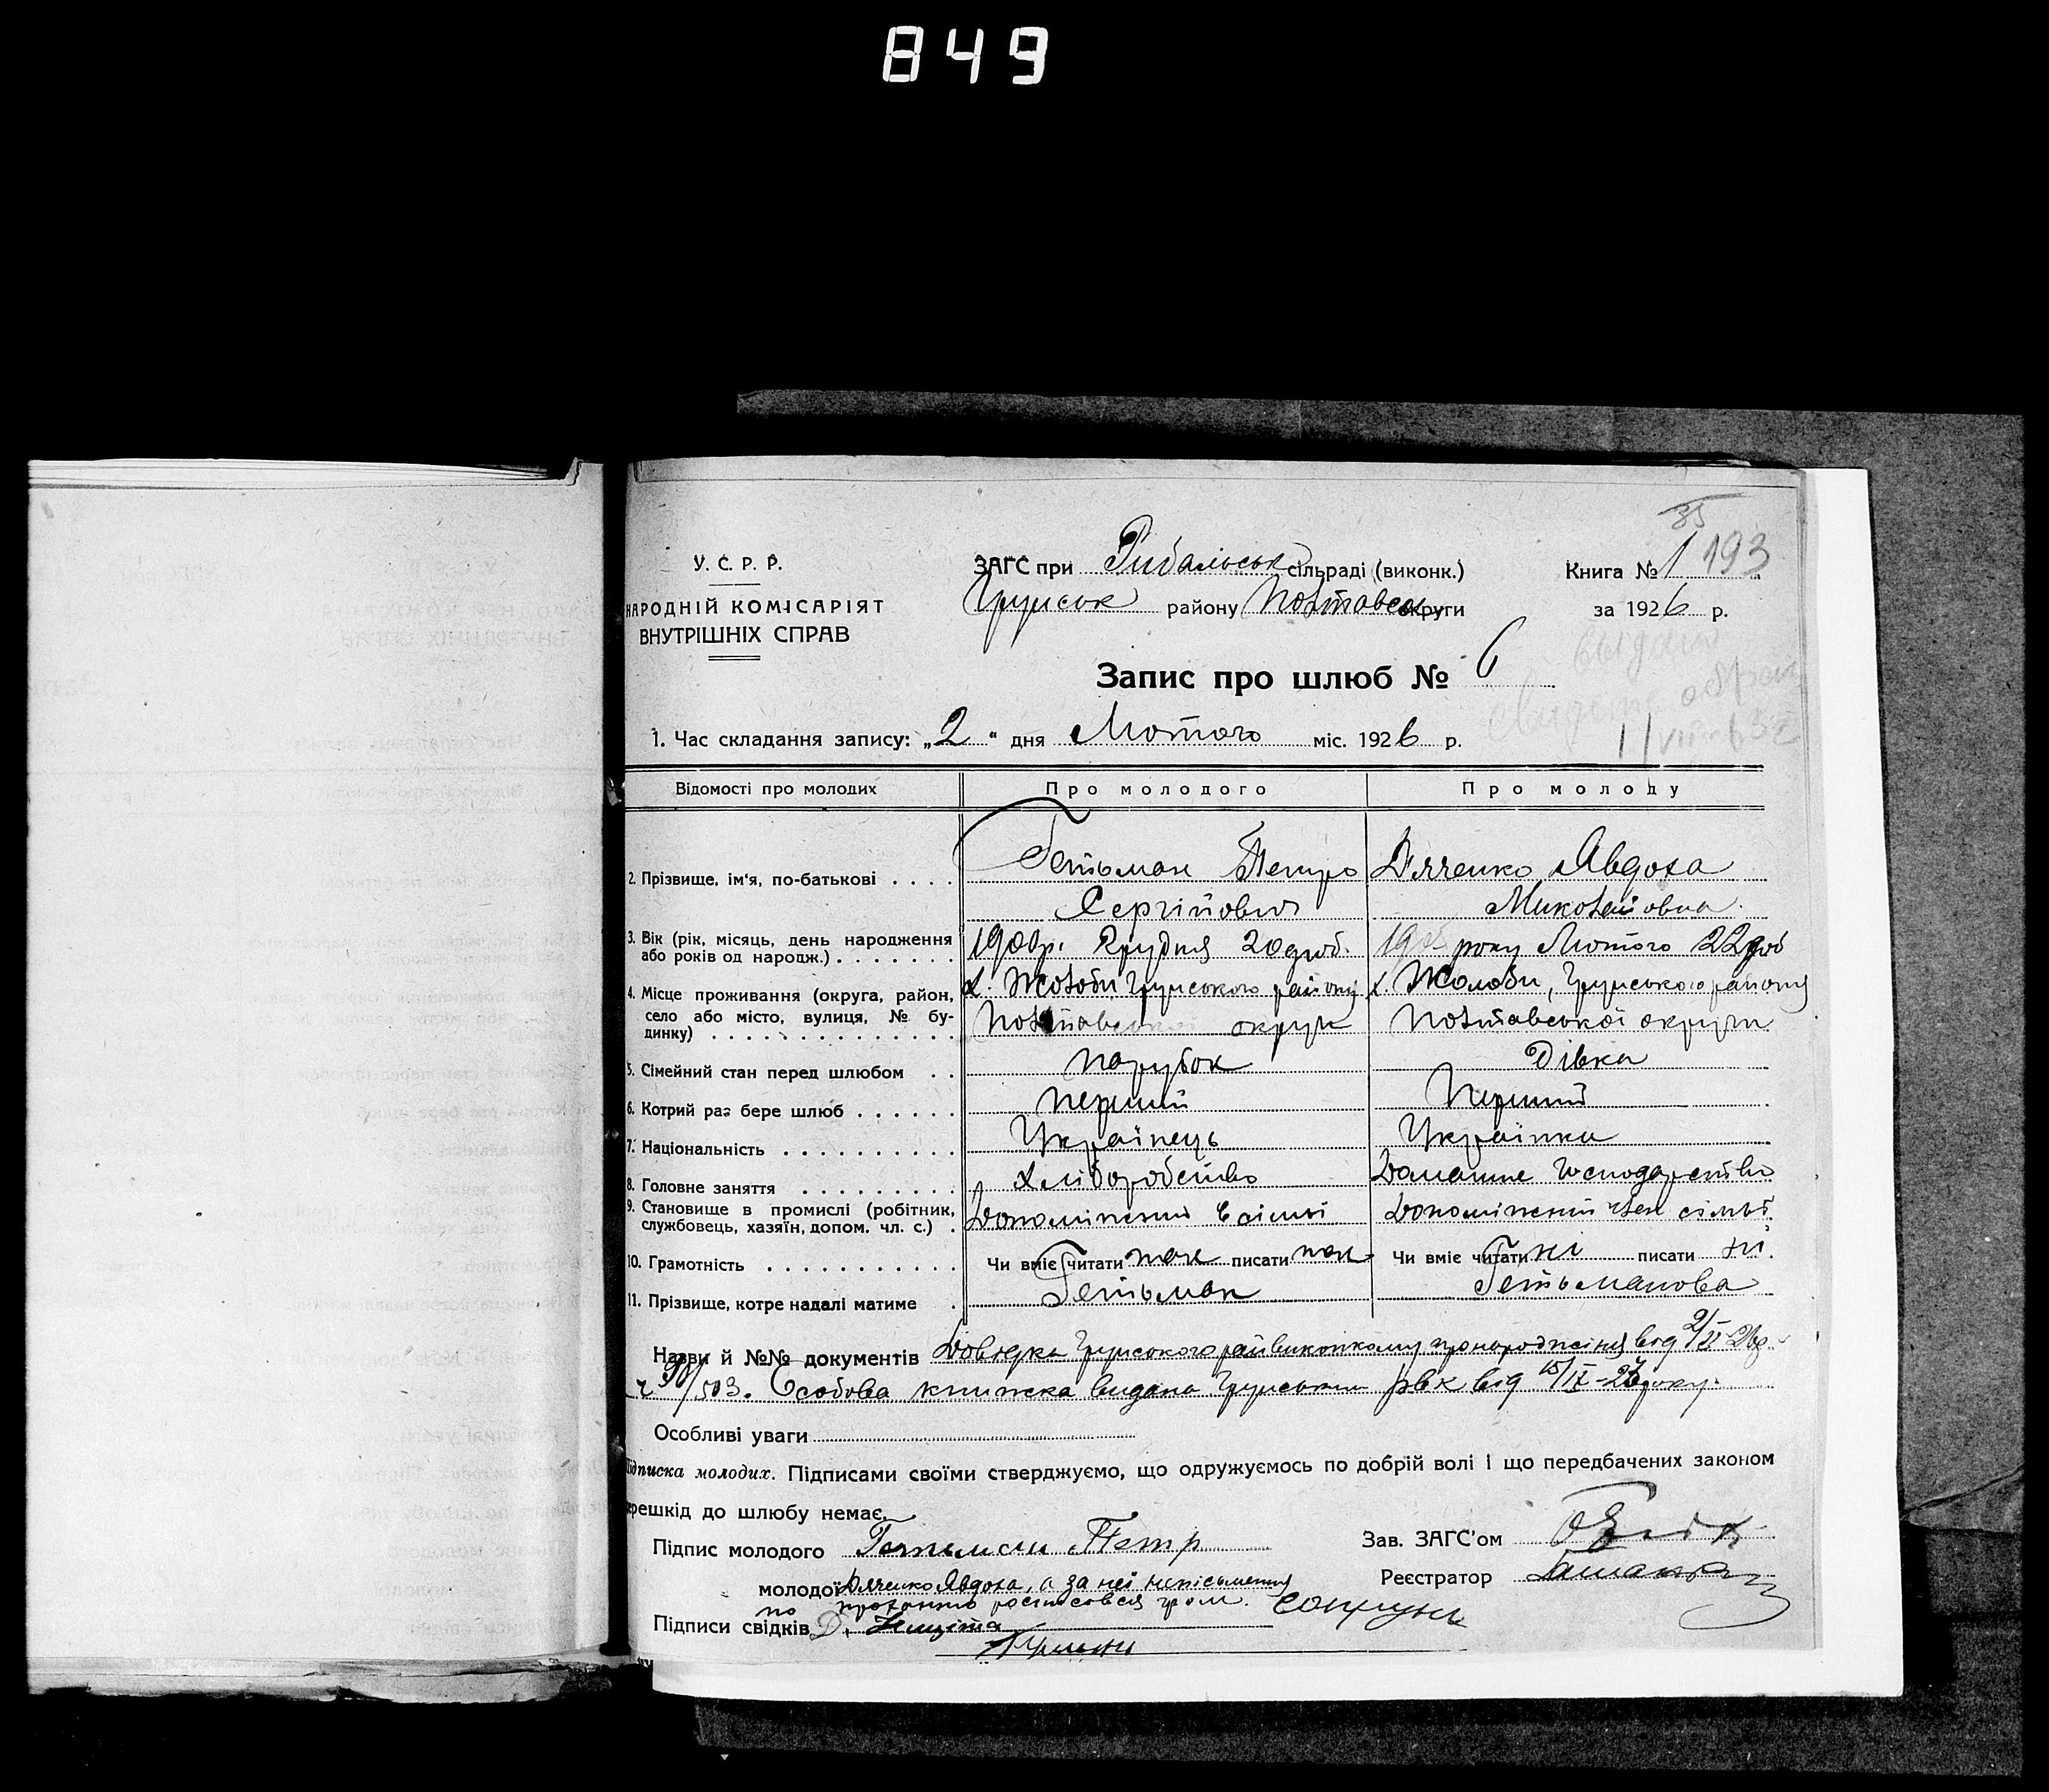 849
85
193
У. С. Р. Р.
НАРОДНІЙ КОМІСАРІЯТ
ВНУТРІШНІХ СПРАВ
ЗАГС при Рибальськ сільраді (виконк.)
Грунськ району Полтавськ округи
Книга № 1
за 1926 р.
Запис про шлюб № 6
1. Час складання запису: „2" дня Лютого міс. 1926 р.
Відомості про молодих Про молодого Про молоду
2. Прізвище, ім'я, по-батькові Гетьман Петро Дяченко Явдоха
Сергійович Миколаївна
3. Вік (рік, місяць, день народження 1900р. Грудня 20 року Лютого 22
або років од народж.)
4. Місце проживання (округа, район, х. Жолоби Грунського району х. Жолоби, Грунського району
село або місто, вулиця, № бу- Полтавської округи Полтавської округи
динку)
5. Сімейний стан перед шлюбом парубок Дівка
6. Котрий раз бере шлюб перший Перший
7. Національність Українець Українка
8. Головне заняття хліборобство Домашне господарство
9. Становище в промислі (робітник, Допоміжний в сімьі Допоміжний член сімьї
службовець, хазяїн, допом. чл. с.)
10. Грамотність Чи вміє читати так писати так Чи вміє читати ні писати ні.
11. Прізвище, котре надалі матиме Гетьман Гетьманова
Назви й №№ документів Довідка Грунського райвиконкому про народження від 2/II-26р.
ч 90/503. Особова книжка видана Грунським рвк від 15/IX-року.
Особливі уваги
Підписка молодих. Підписами своїми стверджуємо, що одружуємось по добрій волі і що передбачених законом
перешкід до шлюбу немає.
Підпис молодого Гетьман Петр Зав. ЗАГС'ом
молодої Дяченко Явдоха, а за неї неписьменну Реєстратор
по проханню росписовся гром.
Підписи свідків